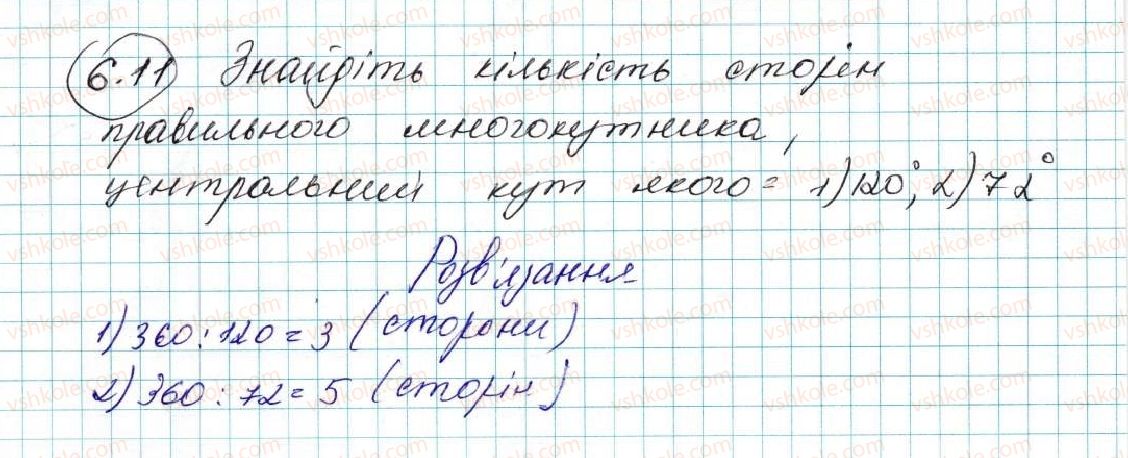 6.11 Знайдіть кількість сторін
правильного многокутника,
центральний кут якого = 1) 120°; 2) 72°
Розв'язання
1) 360 : 120 = 3 (сторони)
2) 360 : 72 = 5 (сторін)